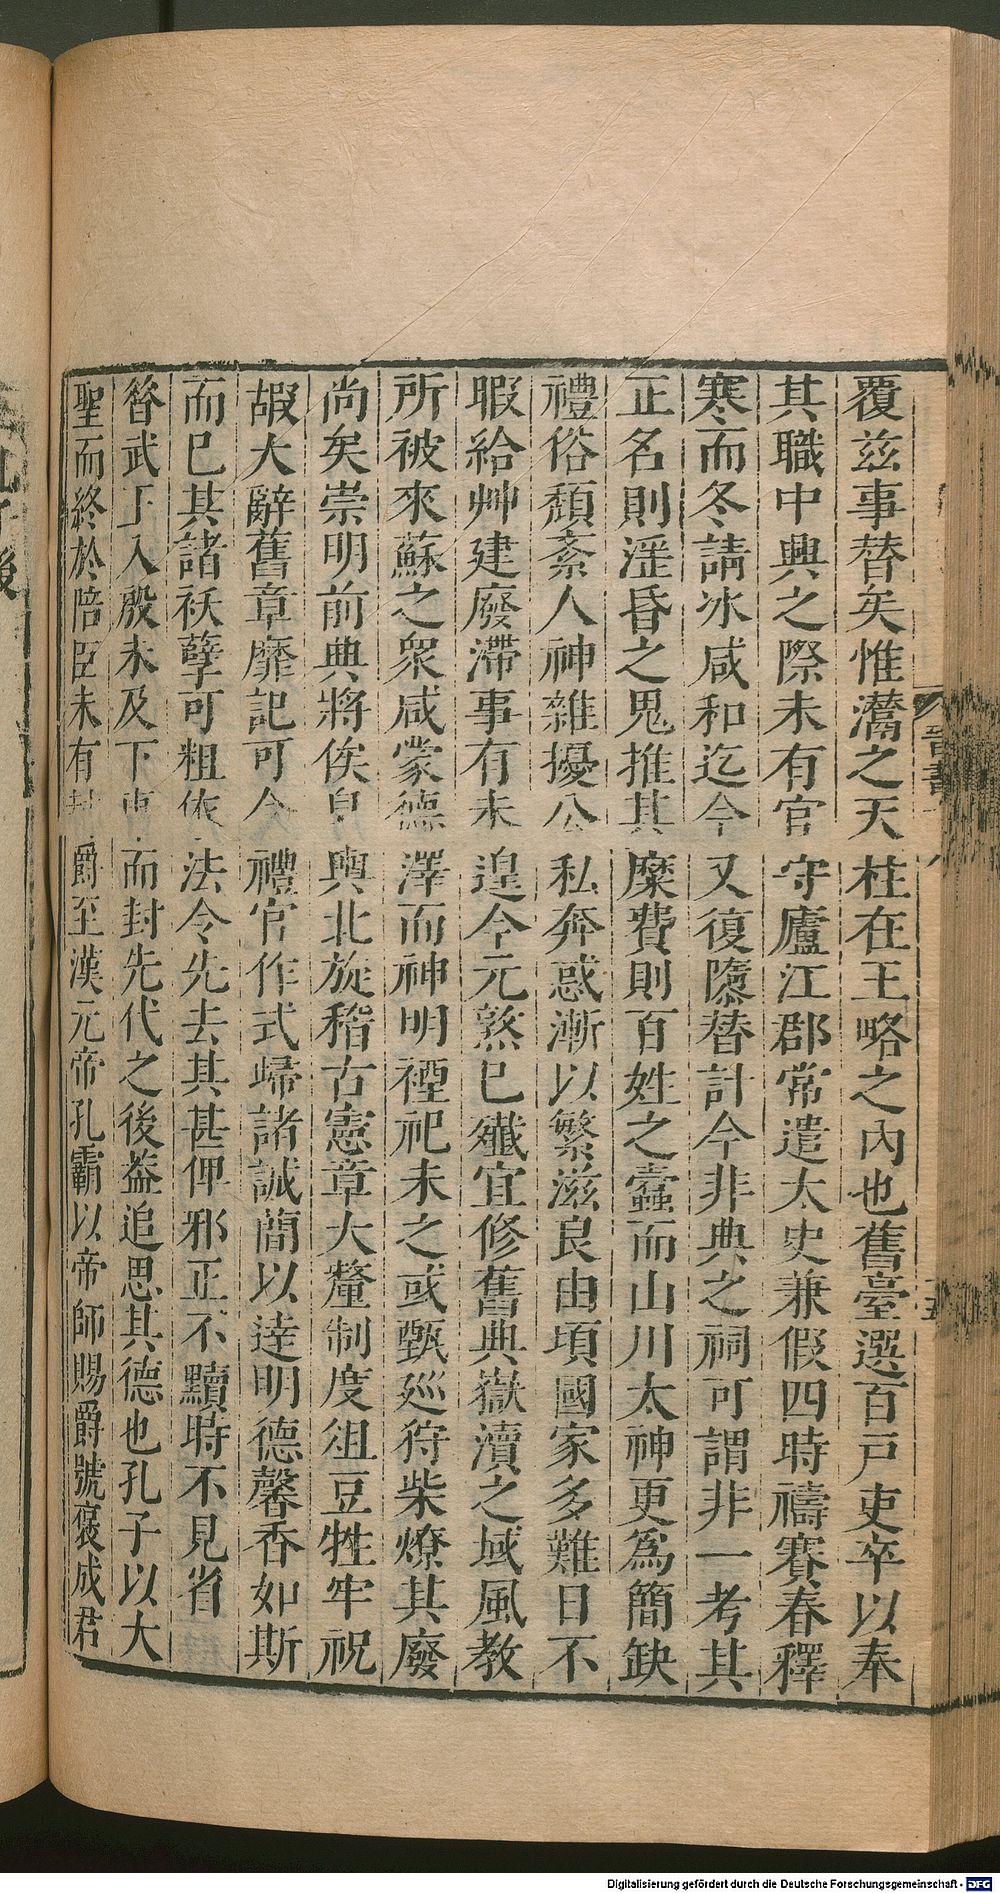 覆茲事替矣惟灊之天柱在王略之內也舊臺選百戸吏卒以奉
其職中興之際未有官守廬江郡常遣太史兼假四時禱賽春釋
寒而冬請冰咸和迄今又復隳替計今非典之祠可謂非一考其
正名則淫昏之鬼推其糜費則百姓之蠹而山川太神更為簡缺
禮俗頹紊人神雜擾公私奔惑漸以繁滋良由頃國家多難日不
暇給艸建廢滯事有未遑今元憝已殲宜修舊典嶽瀆之域風教
所被來蘇之衆咸蒙德澤而神明禋祀未之或甄巡狩柴燎其廢
尚矣崇明前典將俟皇輿北旋稽古憲章大釐制度俎豆牲牢祝
嘏大辭舊章靡記可令禮官作式歸諸誠簡以達明德馨香如斯
而已其諸祅孽可粗依法令先去其甚俾邪正不黷時不見省
昝武王入殷未及下車而封先代之後葢追思其德也孔子以大
聖而終於陪臣未有封爵至漢元帝孔霸以帝師賜爵號褒成君
晉書
Digitalisierung gefördert durch die Deutsche Forschungsgemeinschaft - DFG